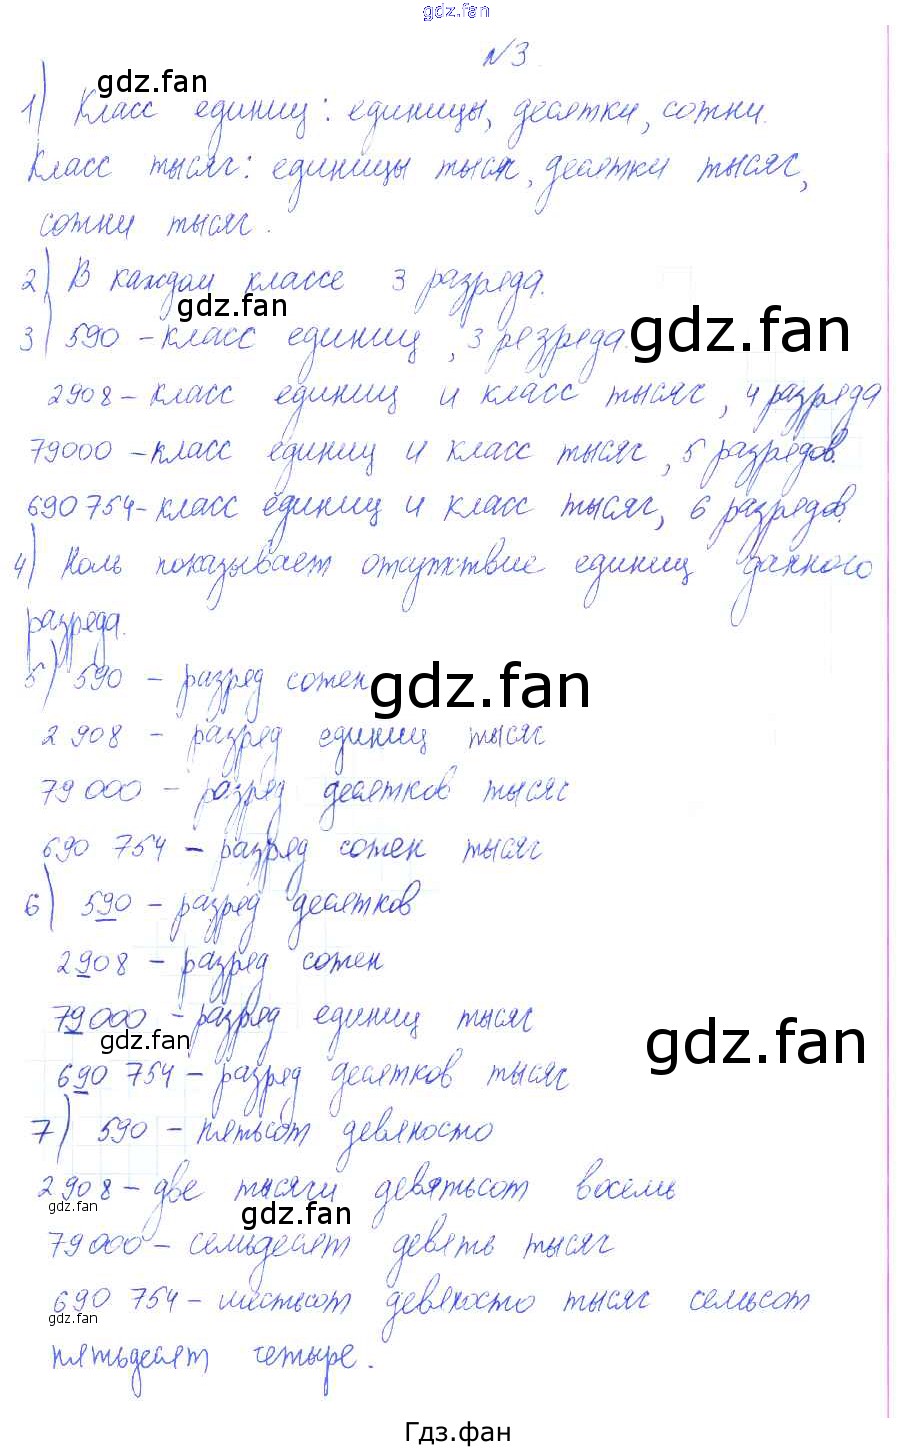 gdz.fan
№3.
gdz.fan
1) Класс единиц: единицы, десятки, сотни.
Класс тысяч: единицы тысяч, десятки тысяч,
сотни тысяч.
2) В каждом классе 3 разряда.
gdz.fan
gdz.fan
3) 590 - класс единиц, 3 резряда.
2908 - класс единиц и класс тысяч, 4 разряда
79000 - класс единиц и класс тысяч, 5 разрядов.
690 754 - класс единиц и класс тысяч, 6 разрядов.
4) Ноль показывает отсутствие единиц данного
разряда.
5) 590 - разряд сотен
gdz.fan
2 908 - разряд единиц тысяч
79 000 - разряд десятков тысяч
690 754 - разряд сотен тысяч
6) 590 - разряд десятков
2908 - разряд сотен
79000 - разряд единиц тысяч
gdz.fan
gdz.fan
690 754 - разряд десятков тысяч
7) 590 - пятьсот девяносто
2 908 - две тысячи девятьсот восемь
gdz.fan
gdz.fan
79 000 - семьдесят девять тысяч
690 754 - шестьсот девяносто тысяч семьсот
gdz.fan
пятьдесят четыре.
Гдз.фан